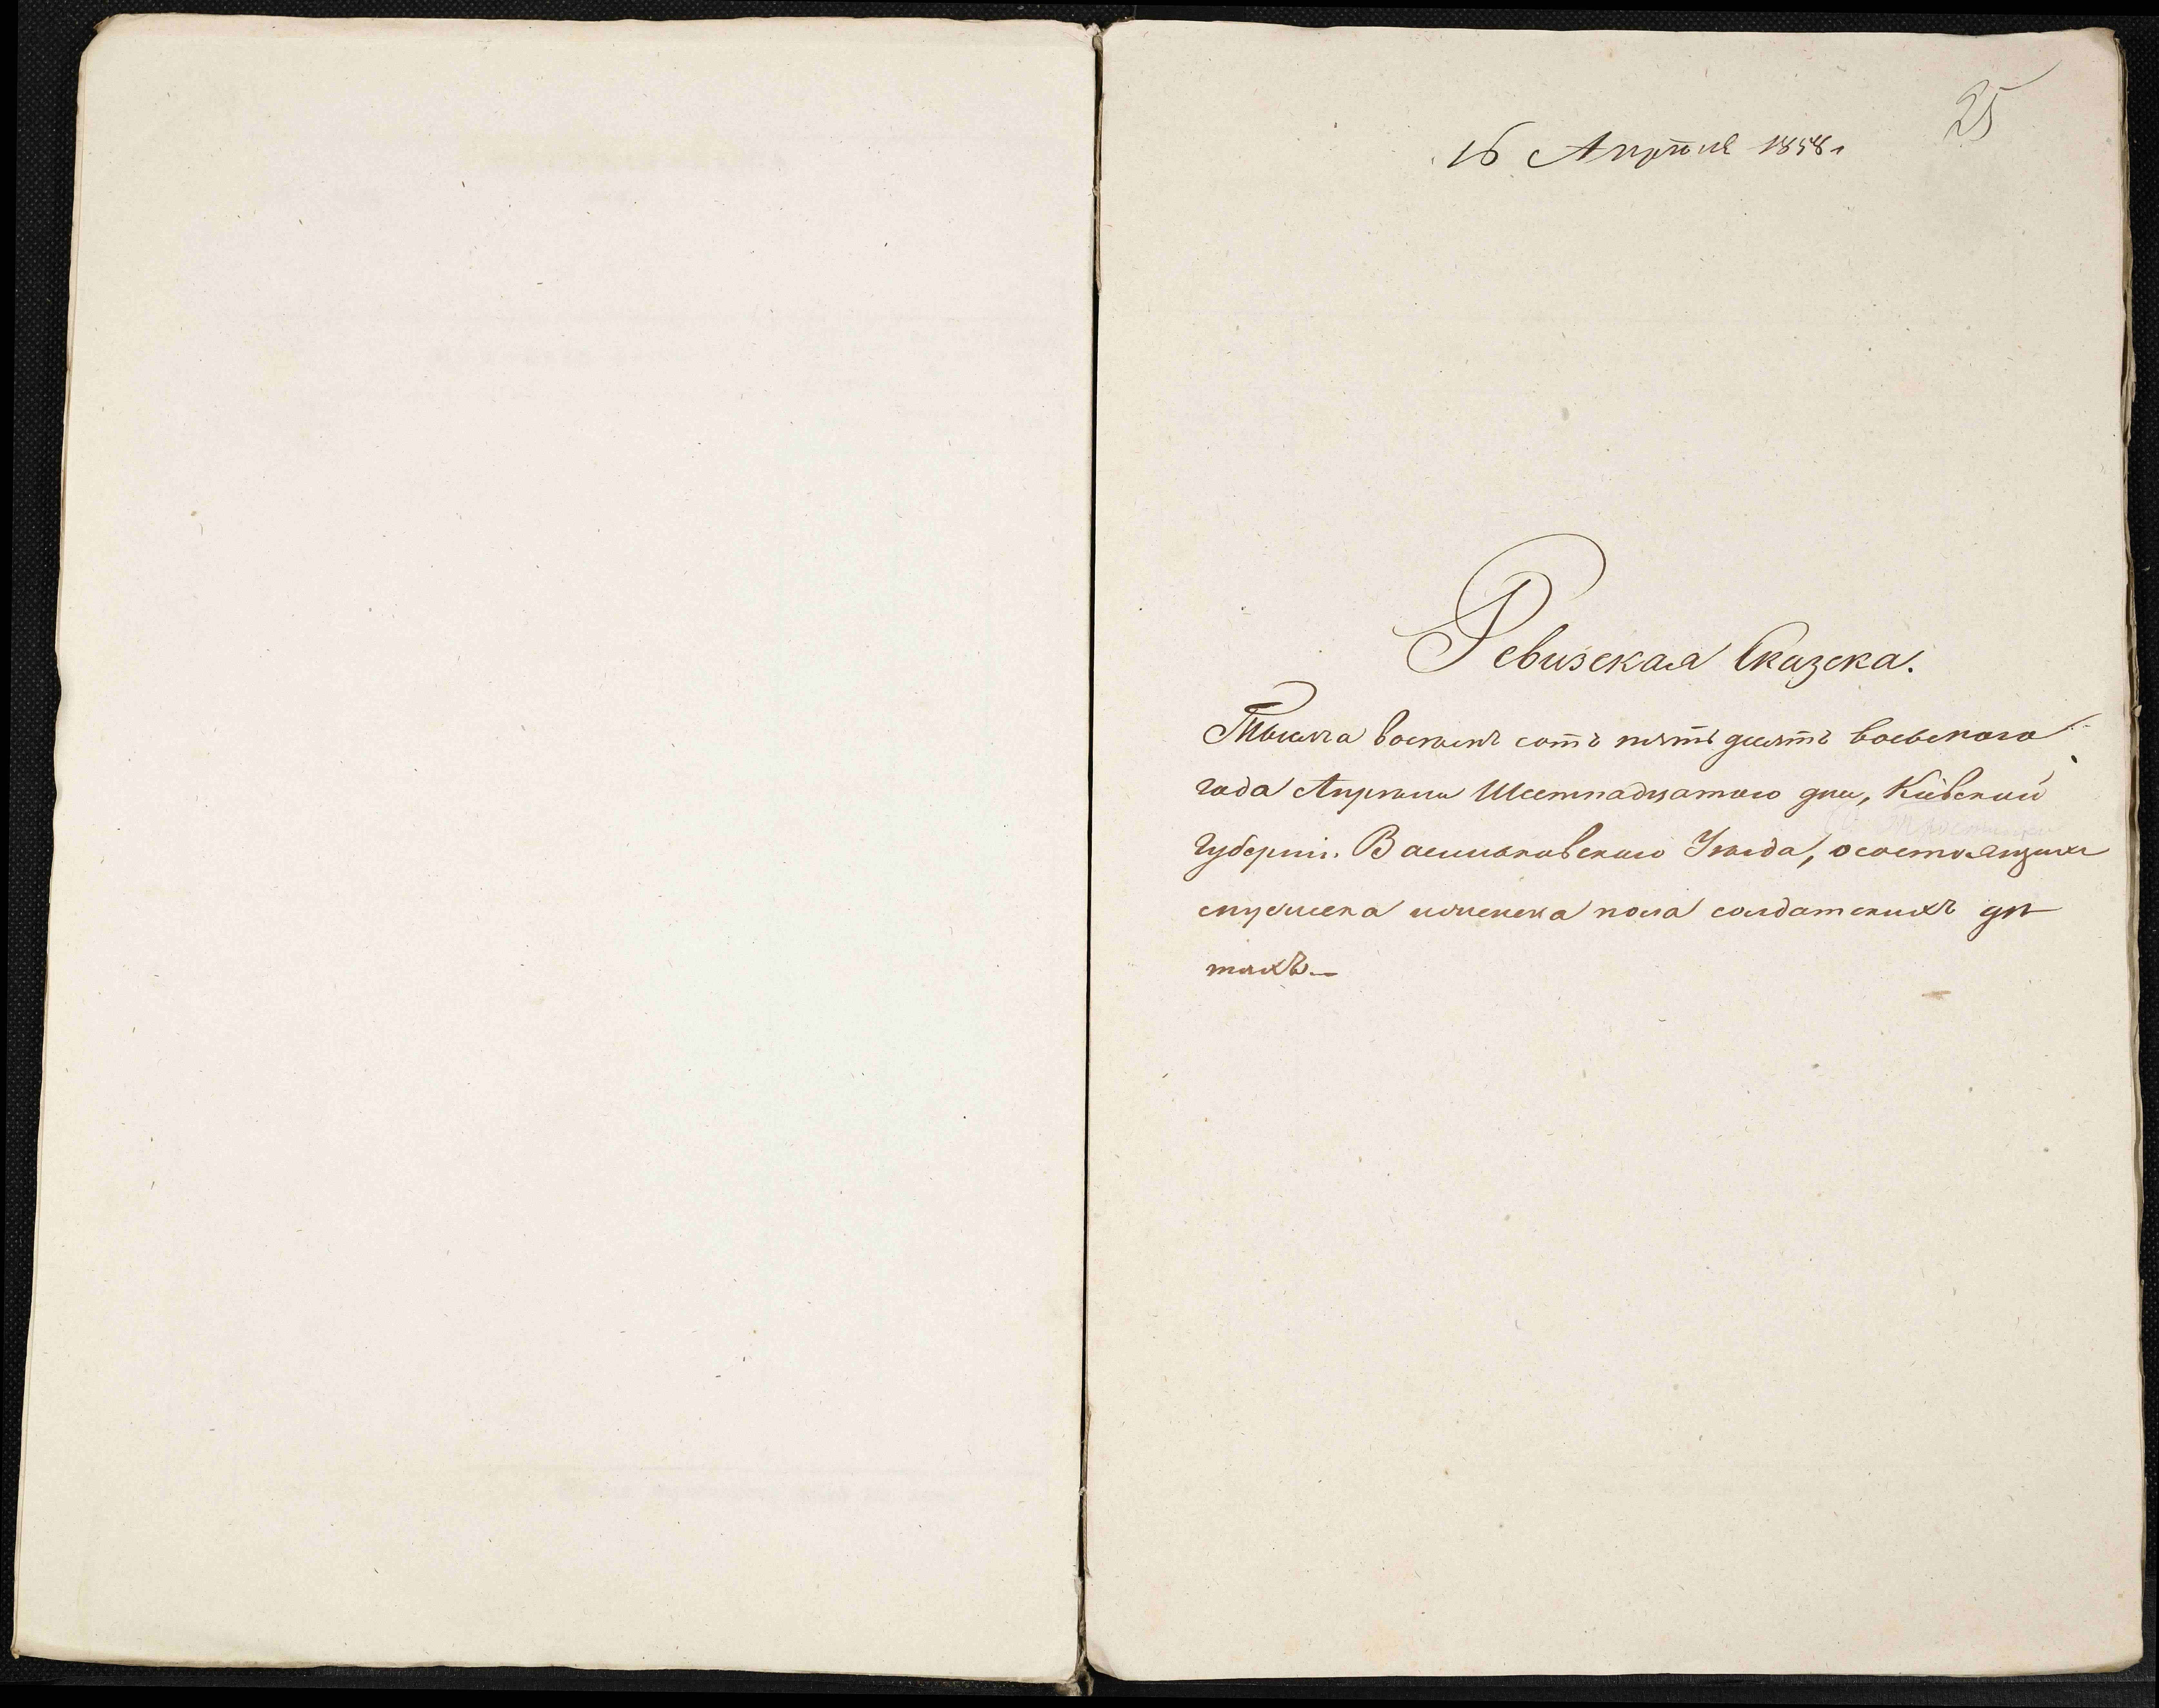 25
16 Апрѣля 1858 г
Ревизская Сказска.
Тысяча восемь сотъ пятьдесятъ восьемого
года Апреля Шестнадцатого дня, Кіевской
Губерніи. Васильковского Уезда, о состоящихъ
мужеска иженска пола солдатскихъ дѣ
тяхъ —